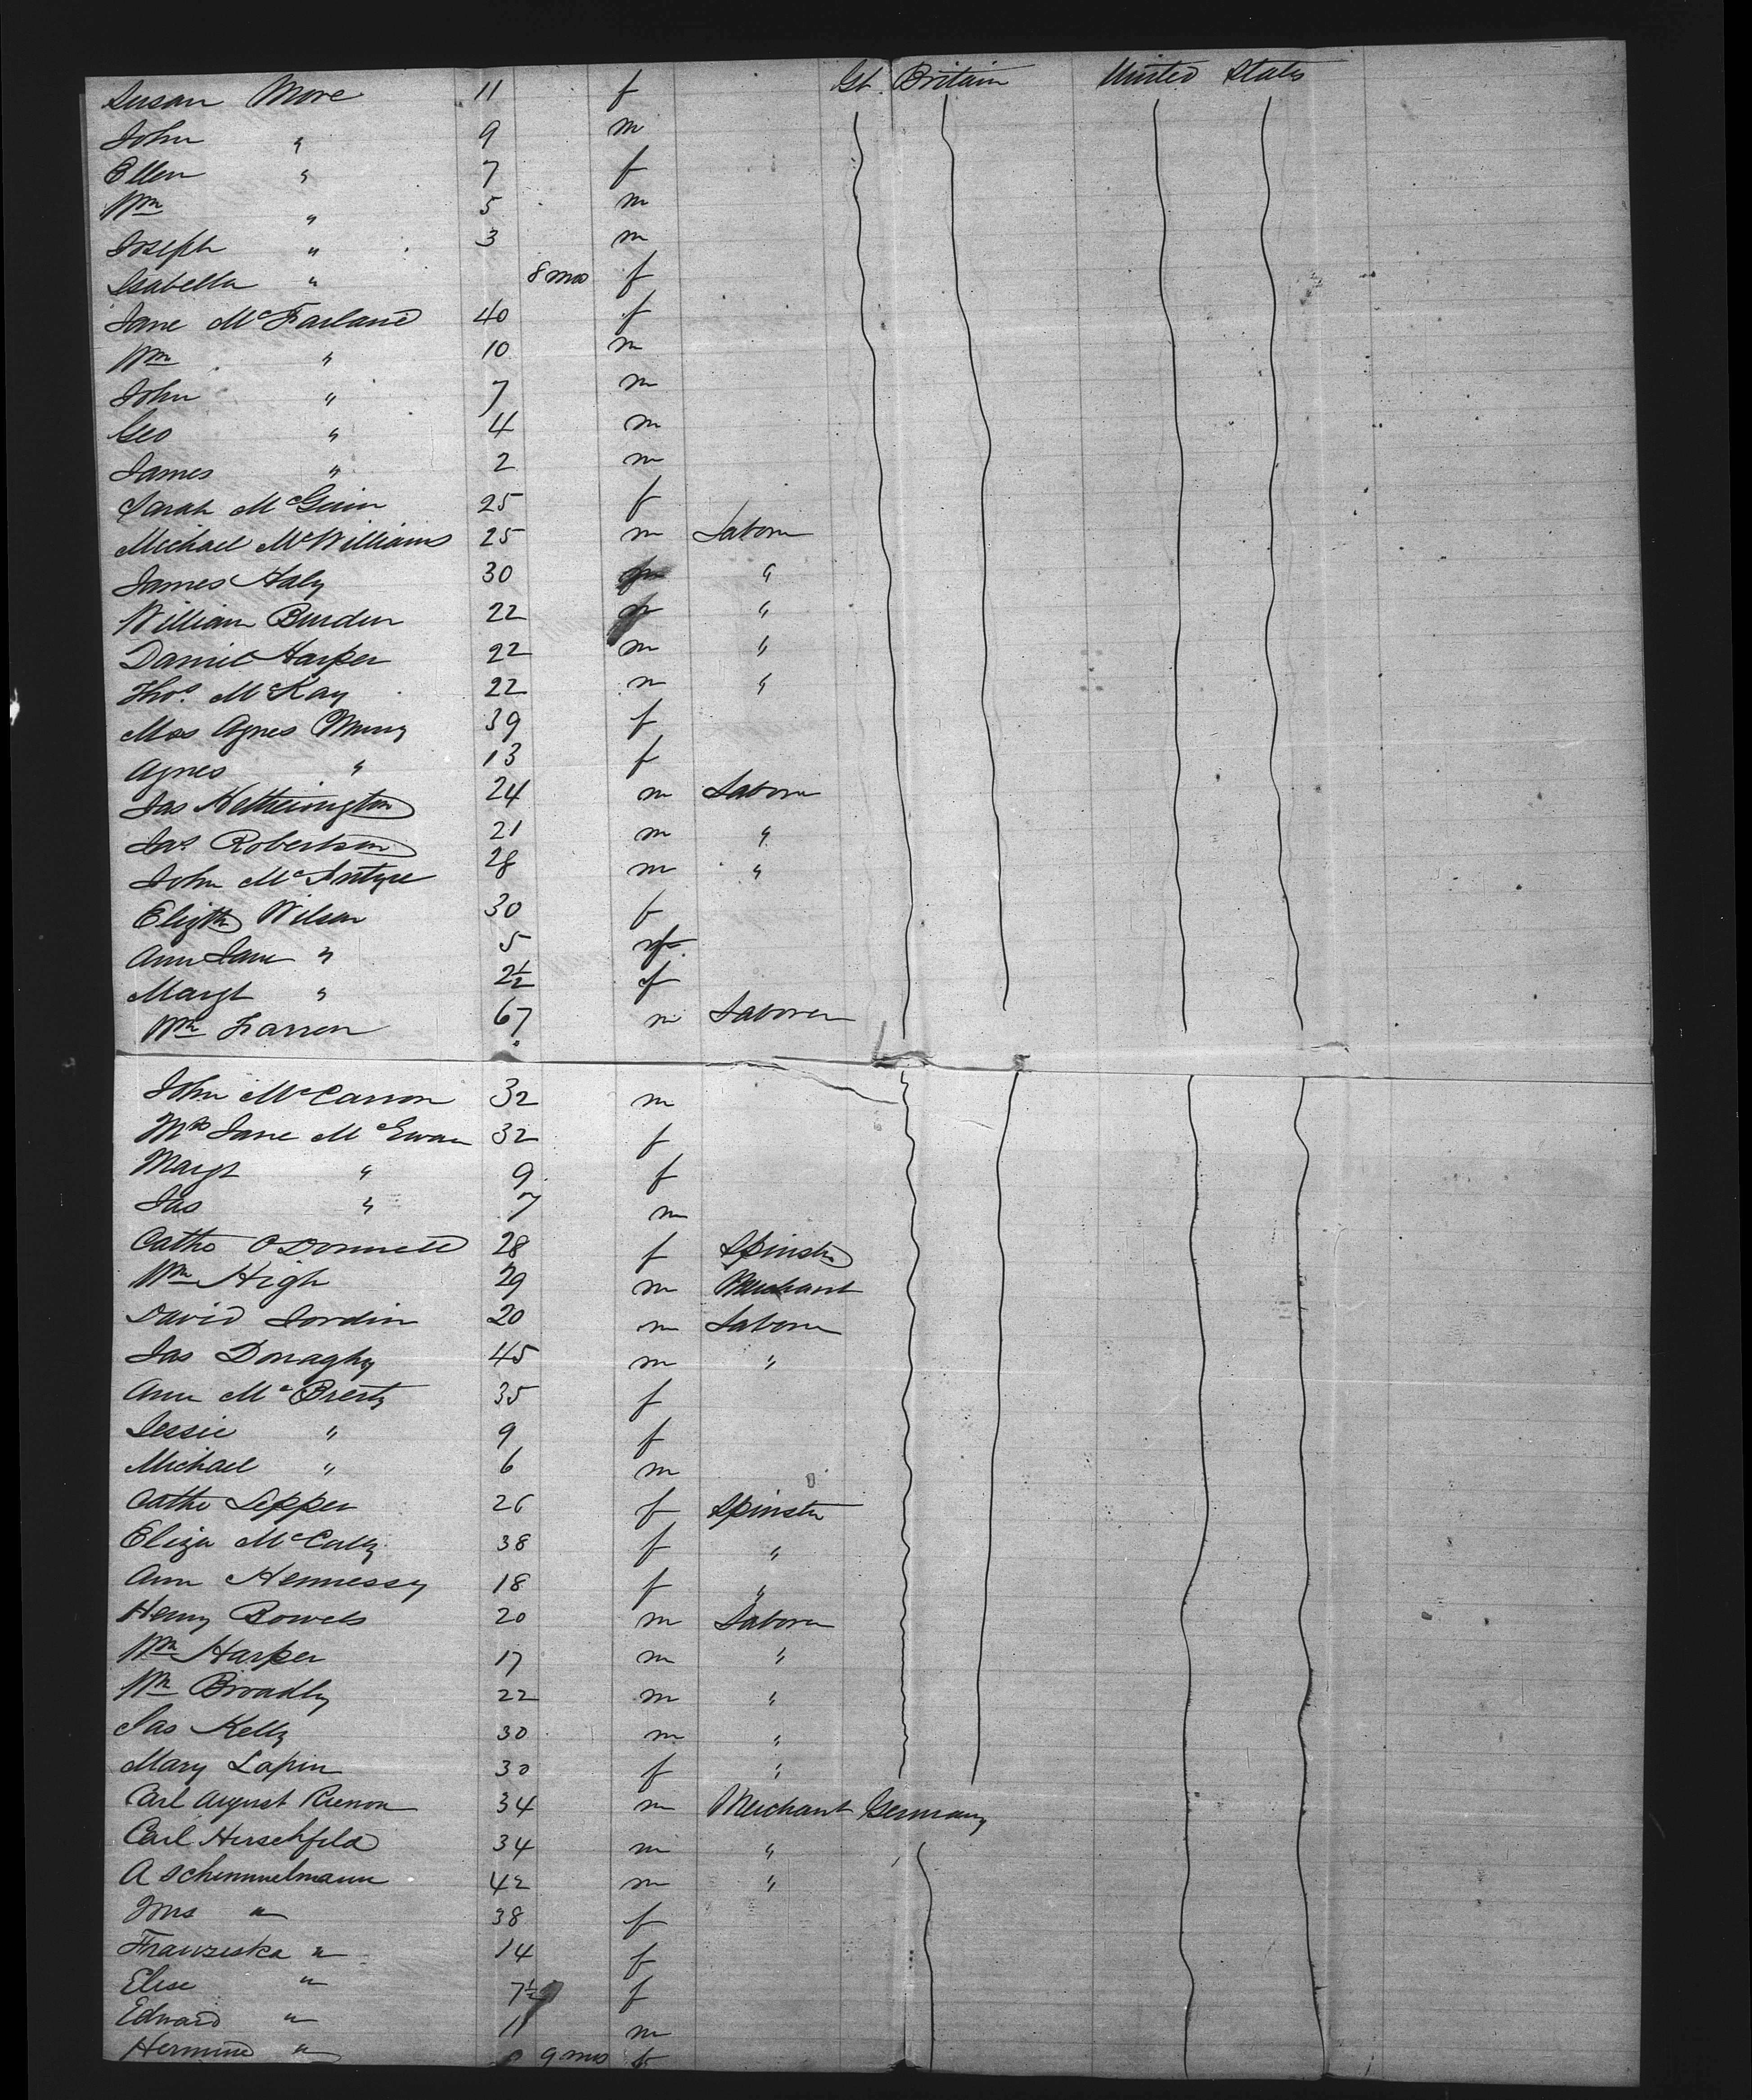 Susan More 11 f Gt. Britain United States
John " 9 m
Ellen " 7 f
Wm " 5 m
Joseph " 3 m
Isabella " 8 mos f
Jane McFarland 40 f
Wm " 10 m
John " 7 m
Geo " 4 m
James " 2 m
Sarah McGinn 25 f
Michael McWilliams 25 m Laborer
James Haly 30 m "
William Burden 22 m "
Daniel Harper 22 m "
Thos. McKay 22 m "
Mrs Agnes 39 f
Agnes " 13 f
Jas Hetherington 24 m Laborer
Jas Robertson 21 m "
John McIntyre 28 m "
Elizth Wilson 30 f
Ann Jane " 5 f
Margt " 2½ f
Wm Farren 67 m Laborer
John McCarron 32 m
Mrs Jane McEwan 32 f
Margt " 9 f
Jas " 7 m
Cathe O'Donnell 28 f Spinster
Wm High 29 m Merchant
David Jordin 20 m Laborer
Jas Donaghy 45 m "
Ann McBrerty 35 f
Jessie " 9 f
Michael " 6 m
Cathe Lepper 26 f Spinster
Eliza McCally 38 f "
Ann Hennessy 18 f "
Henry Bowels 20 m Laborer
Wm Harper 17 m "
Wm Broadly 22 m "
Jas Kelly 30 m "
Mary Lapin 30 f "
Carl August 34 m Merchant Germany
Carl Herschfeld 34 m "
A Schimmelmann 42 m "
Mrs " 38 f
Franziska " 14 f
Elise " 7½ f
Edward " 11 m
Hermine " 9 mos f